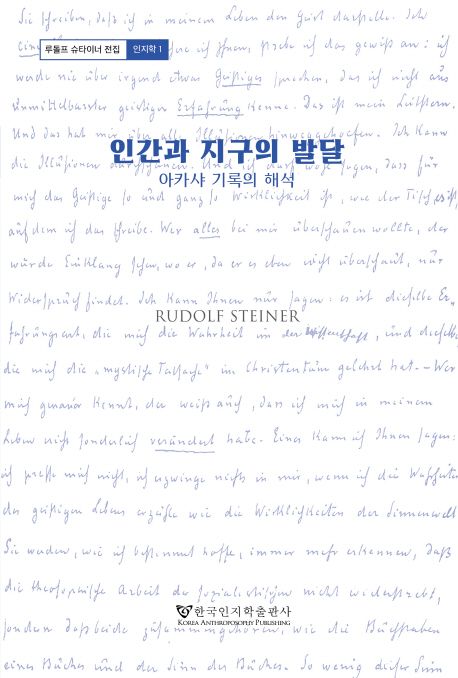 Sie schreiben, daß ich in meinem Leben den Geist darstelle. Ich
루돌프 슈타이너 전집 인지학 1
werde nie über irgend etwas Geistiges sprechen, das ich nicht aus
unmittelbarster geistiger Erfahrung kenne. Das ist mein Leitstern.
Und das hat mir über alle Illusionen hinweggeholfen. Ich kann
인간과 지구의 발달
die Illusionen durchschauen. Und ich darf wohl sagen, dass für
아카샤 기록의 해석
mich das Geistige so und ganz so Wirklichkeit ist, wie der Tisch,
auf dem ich das schreibe. Wer alles bei mir überschauen wollte, der
würde Einklang sehen, wo er, da er es eben nicht überschaut, nur
Widerspruch findet. Ich kann Ihnen nur sagen: es ist dieselbe Er-
RUDOLF STEINER
fahrungsart, die mich die Wahrheit in der Wissenschaft, und dieselbe
die mich die „mystische Tatsache" im Christentum gelehrt hat. – Wer
mich genauer kennt, der weiß auch, dass ich mich in meinem
Leben nicht sonderlich verändert habe. Eines kann ich Ihnen sagen:
ich presse mich nicht, ich erzwinge nichts in mir, wenn ich die Wahrheiten
des geistigen Lebens erzähle wie die Wirklichkeiten der Sinnenwelt
Sie werden, wie ich bestimmt hoffe, immer mehr erkennen, daß
die theosophische Arbeit der sozialistischen nicht widerstrebt,
한국인지학출판사
KOREA ANTHROPOSOPHY PUBLISHING
sondern daß beide zusammengehören, wie die Buchstaben
eines Buches und der Sinn des Buches. So wenig dieser Sinn